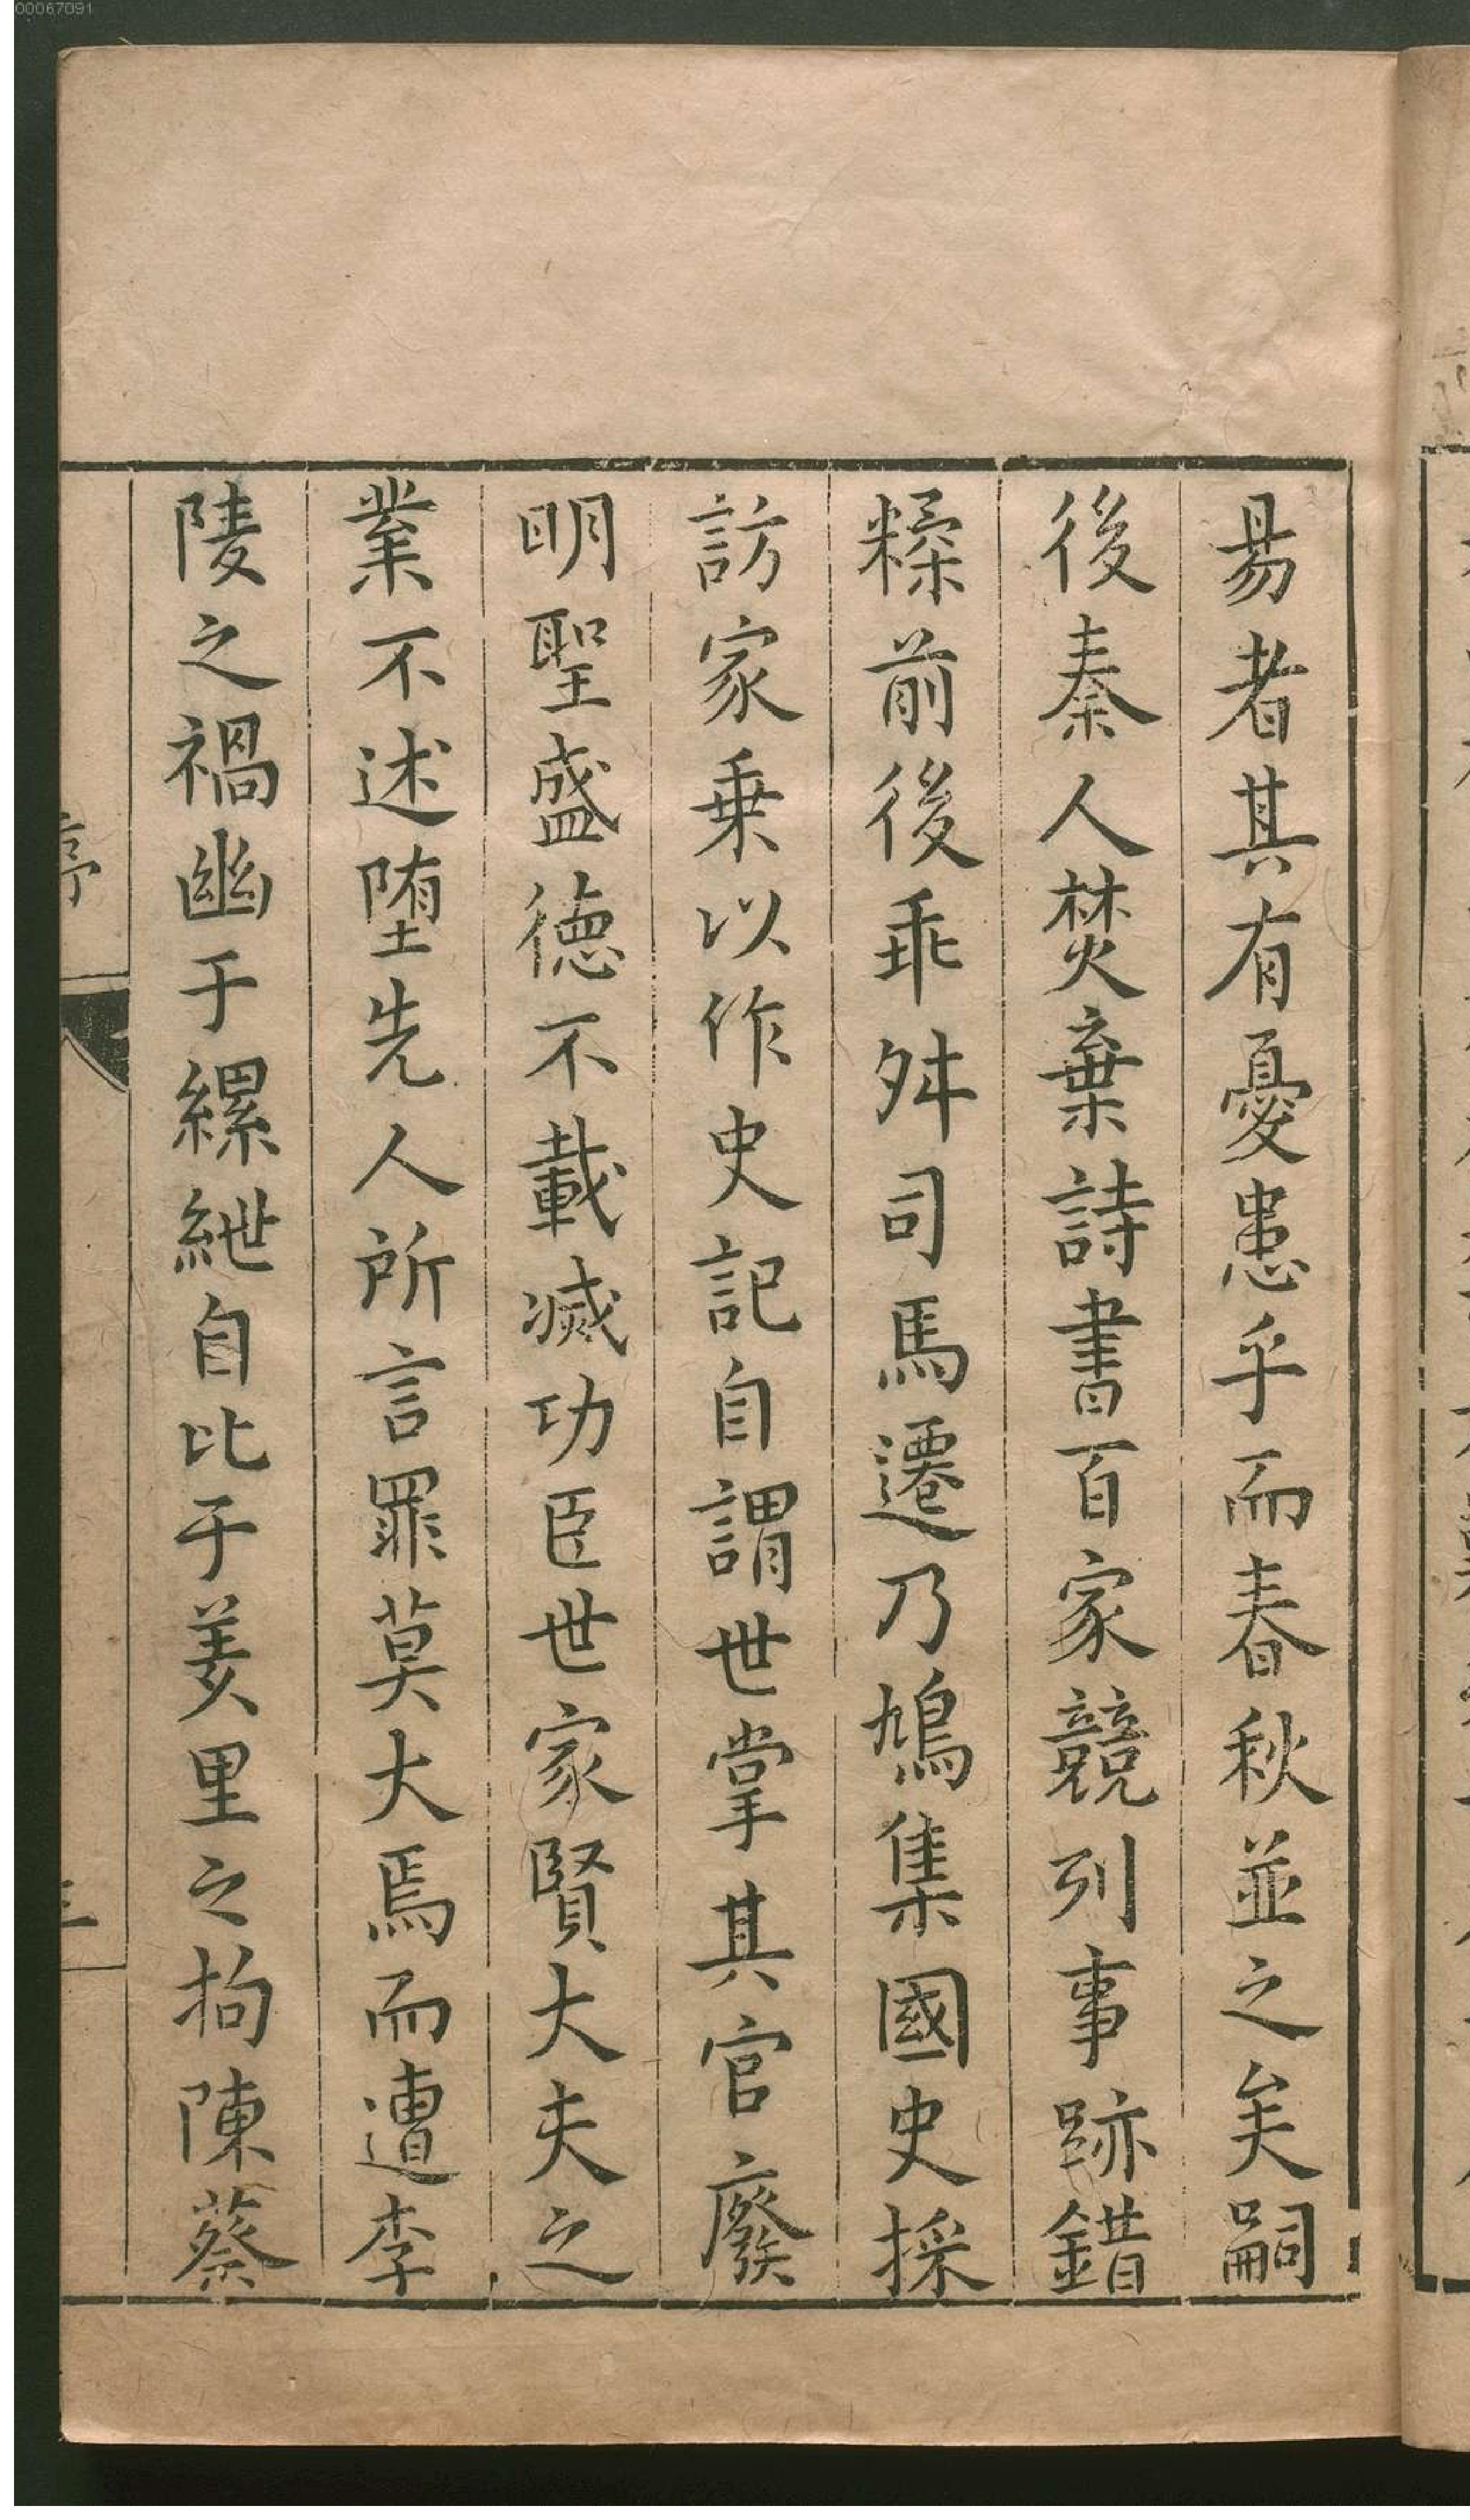 易者其有憂患乎而春秋並之矣嗣
後秦人焚棄詩書百家競列事跡錯
糅前後乖舛司馬遷乃鳩集國史採
訪家乗以作史記自謂世掌其官廢
明聖盛徳不載滅功臣世家賢大夫之
業不述堕先人所言罪莫大焉而遭李
陵之禍幽于縲紲自比于羑里之拘陳蔡
序
三
00067091